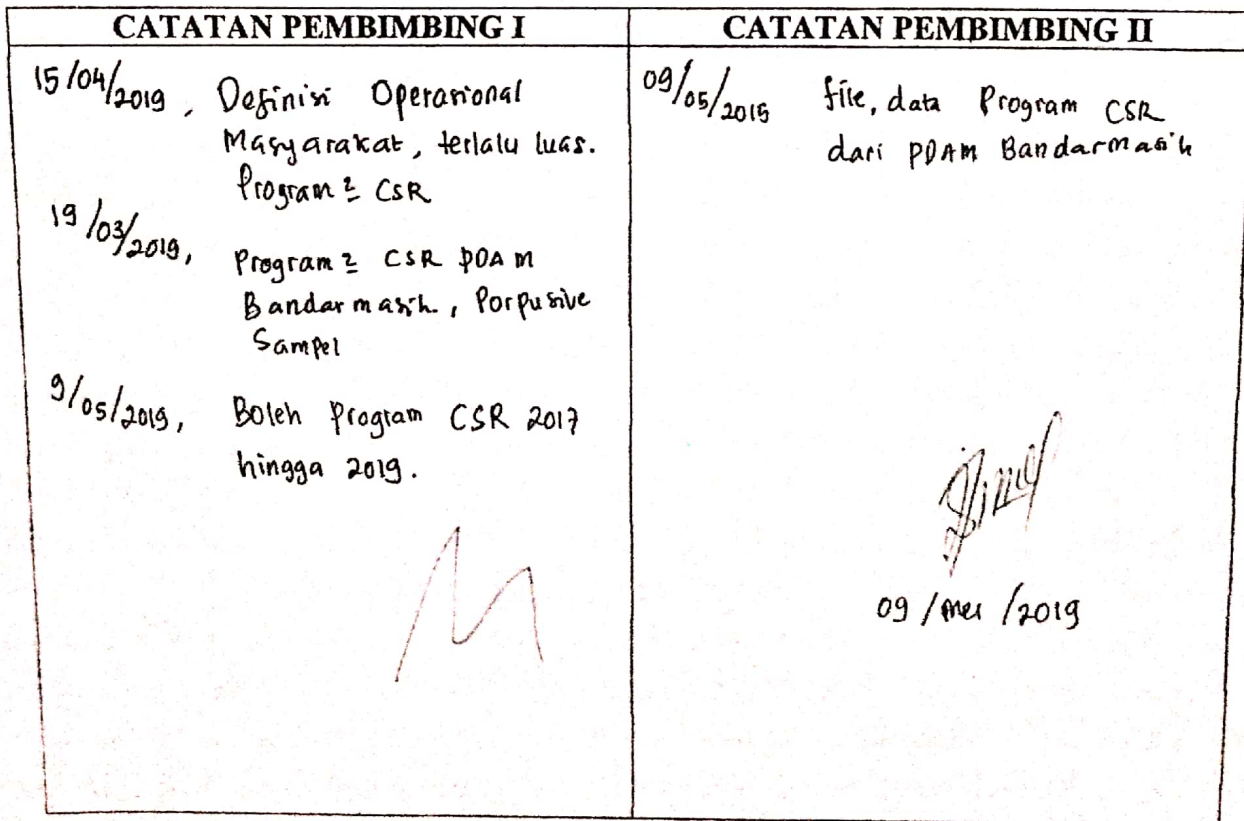 CATATAN PEMBIMBING I
15/04/2019, Definisi Operasional
Masyarakat, terlalu luas.
Program2 CSR
19/03/2019, Program2 CSR PDAM
Bandarmasih, Porpusive
Sampel
9/05/2019, Boleh Program CSR 2017
hingga 2019.
CATATAN PEMBIMBING II
09/05/2019 file, data Program CSR
dari PDAM Bandarmasih
09/Mei/2019